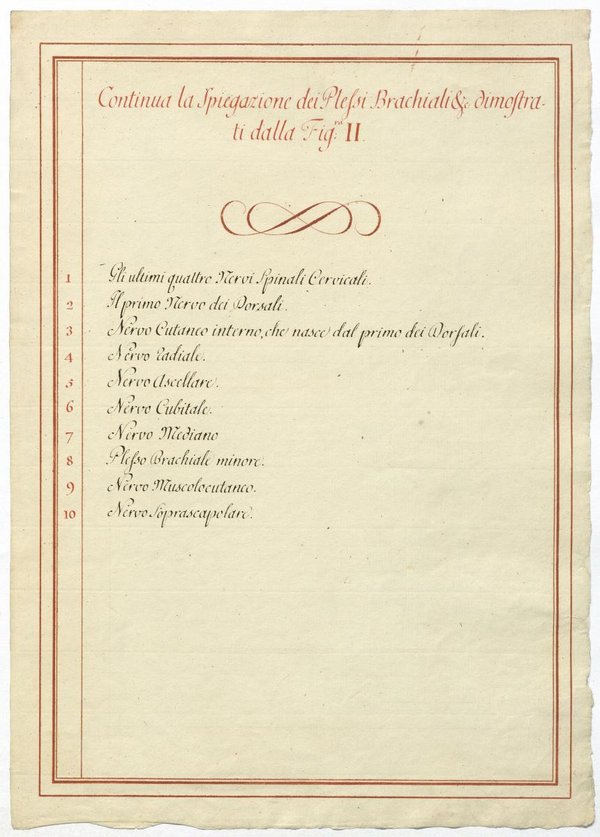 Continua la Spiegazione dei Plessi Brachiali &c. dimostra-
ti dalla Fig.ra II.
1 Gli ultimi quattro Nervi Spinali Cervicali.
2 Il primo Nervo dei Dorsali.
3 Nervo Cutaneo interno, che nasce dal primo dei Dorsali.
4 Nervo Radiale.
5 Nervo Ascellare.
6 Nervo Cubitale.
7 Nervo Mediano
8 Plesso Brachiale minore.
9 Nervo Muscolocutaneo.
10 Nervo Soprascapolare.